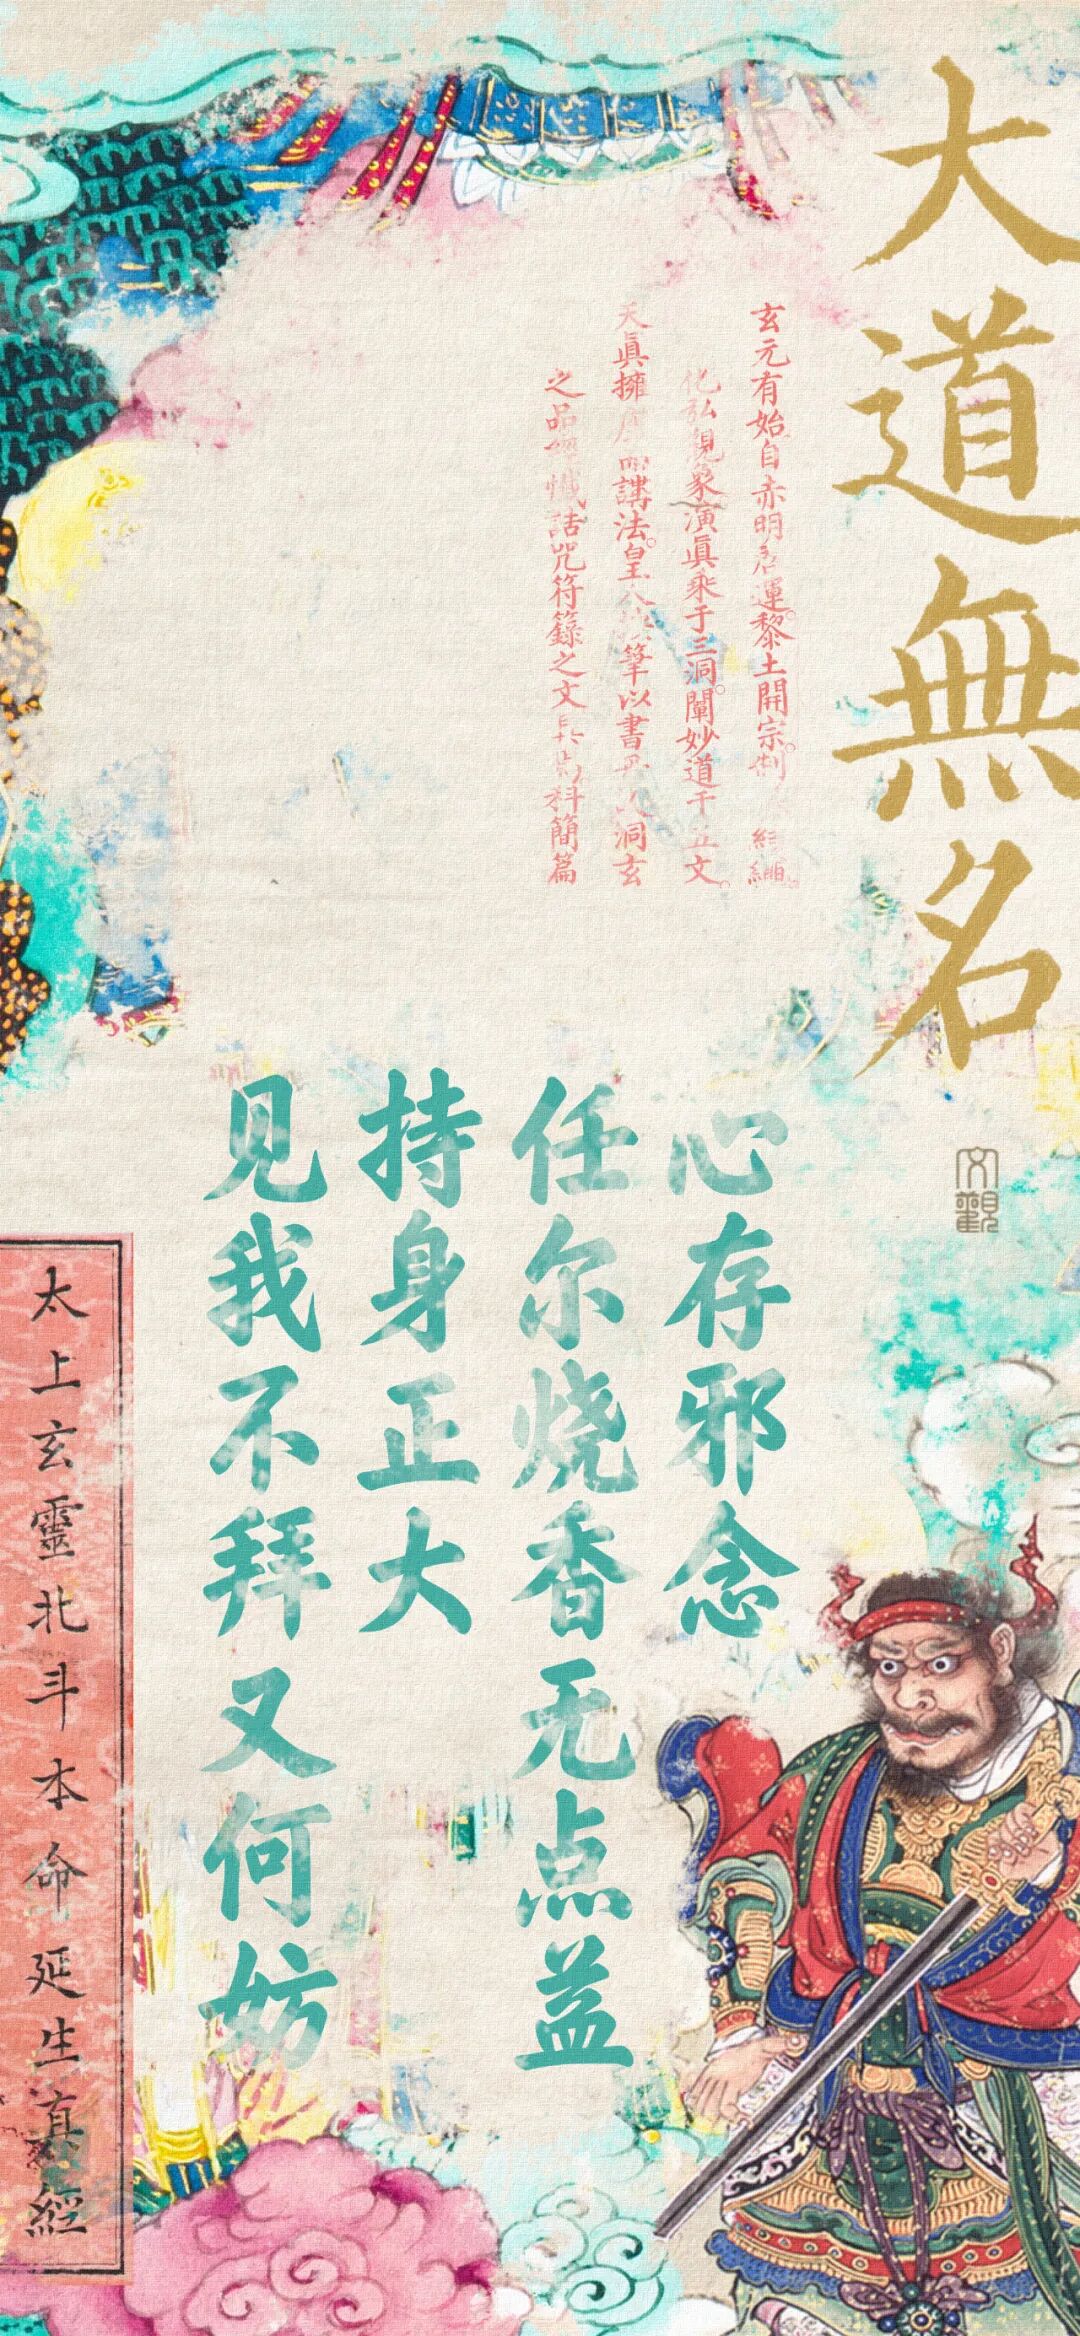 大道無名
文觀
玄元有始自赤明 運黎土開宗制
化弘觀象演眞乘于三洞闡妙道于 文
天眞擁 講法皇 筆以書 洞玄
之品 誥咒符籙之文 科簡篇
心存邪念
任尔烧香无点益
持身正大
见我不拜又何妨
太上玄靈北斗本命延生真經